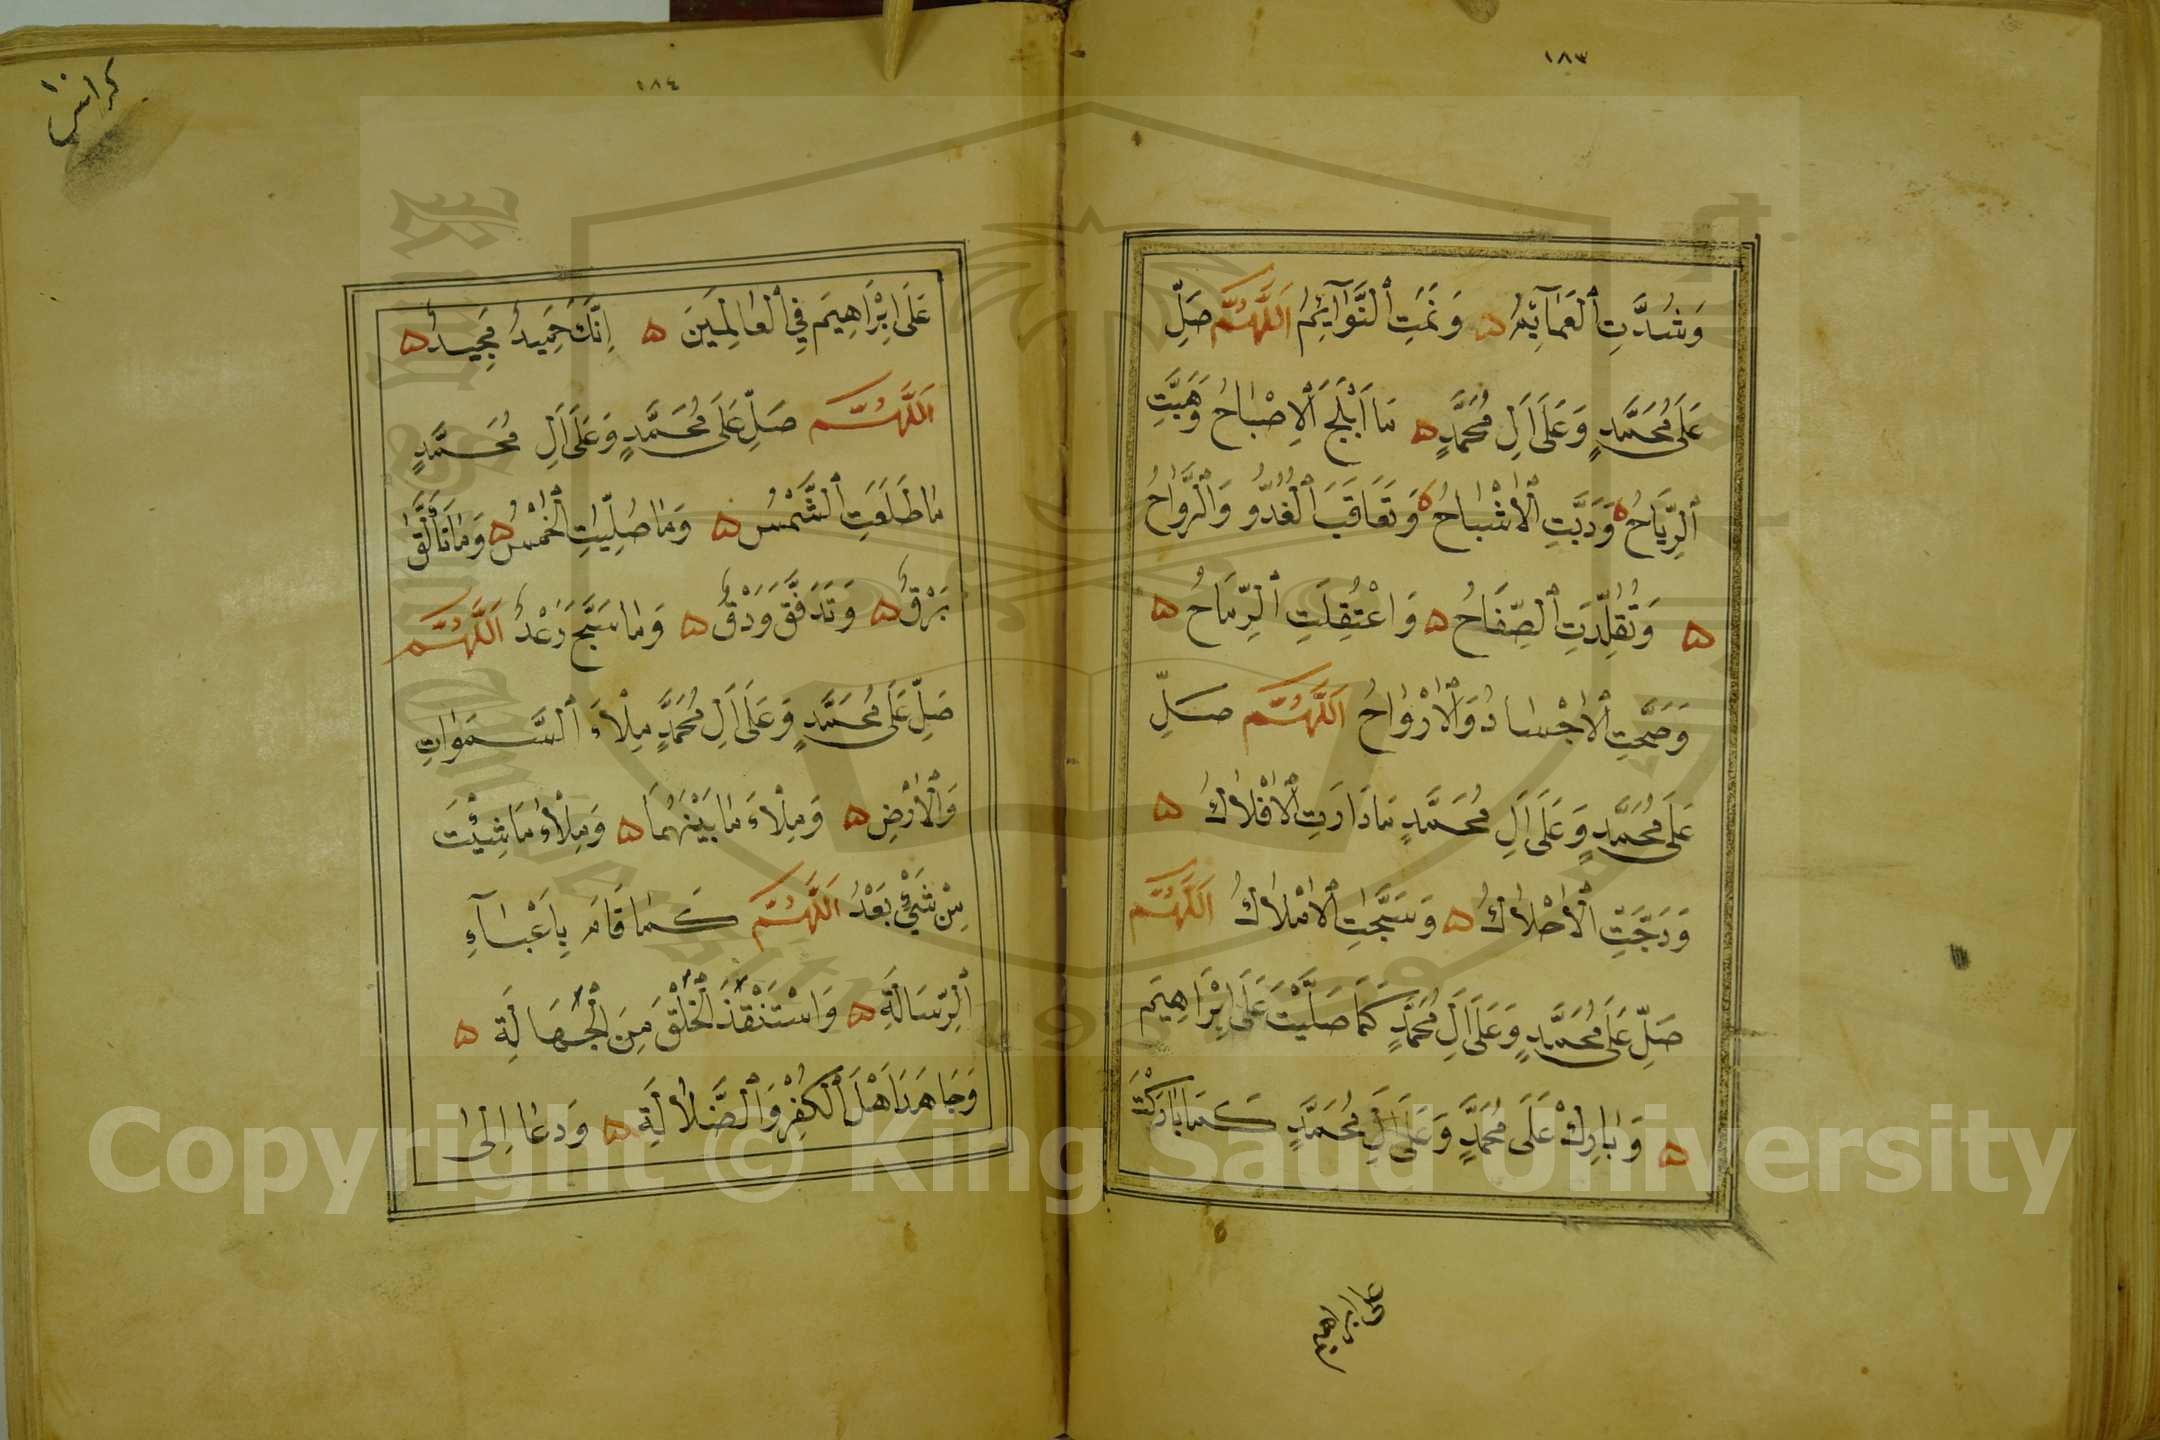 ١٨٣
وَشُدَّتِ ٱلْعَمَآئِمُ ۵ وَنَمَتِ ٱلنَّوَآئِمُ اَللّٰهُمَّ صَلِّ
عَلَى مُحَمَّدٍ وَعَلَى اَلِ مُحَمَّدٍ ۵ مَا اَبْلَجَ ٱلْاِصْبَاحُ وَهَبَّتِ
ٱلرِّيَاحُ ۵ وَدَبَّتِ ٱلْاَشْبَاحُ ۵ وَتَعَاقَبَ ٱلْغُدُوُّ وَٱلرَّوَاحُ
۵ وَتُقُلِّدَتِ ٱلصِّفَاحُ ۵ وَاعْتُقِلَتِ ٱلرِّمَاحُ ۵
وَصَحَّتِ ٱلْاَجْسَادُ وَٱلْاَرْوَاحُ اَللّٰهُمَّ صَلِّ
عَلَى مُحَمَّدٍ وَعَلَى اَلِ مُحَمَّدٍ مَا دَارَتِ ٱلْاَفْلَاكُ ۵
وَدَجَتِ ٱلْاَحْلَاكُ ۵ وَسَبَّحَتِ ٱلْاَمْلَاكُ اَللّٰهُمَّ
صَلِّ عَلَى مُحَمَّدٍ وَعَلَى اَلِ مُحَمَّدٍ كَمَا صَلَّيْتَ عَلَى اِبْرَاهِيمَ
۵ وَبَارِكْ عَلَى مُحَمَّدٍ وَعَلَى اَلِ مُحَمَّدٍ كَمَا بَارَكْتَ
على ابراهيم
١٨٤
كراس
عَلَى اِبْرَاهِيمَ فِي ٱلْعَالَمِينَ ۵ اِنَّكَ حَمِيدٌ مَجِيدٌ ۵
اَللّٰهُمَّ صَلِّ عَلَى مُحَمَّدٍ وَعَلَى اَلِ مُحَمَّدٍ
مَا طَلَعَتِ ٱلشَّمْسُ ۵ وَمَا صُلِّيَتِ ٱلْخَمْسُ ۵ وَمَا تَأَلَّقَ
بَرْقٌ ۵ وَتَدَفَّقَ وَدْقٌ ۵ وَمَا سَبَّحَ رَعْدٌ اَللّٰهُمَّ
صَلِّ عَلَى مُحَمَّدٍ وَعَلَى اَلِ مُحَمَّدٍ مِلْاَءَ ٱلسَّمَوَاتِ
وَٱلْاَرْضِ ۵ وَمِلْاَءَ مَا بَيْنَهُمَا ۵ وَمِلْاَءَ مَا شِئْتَ
مِنْ شَيْءٍ بَعْدُ اَللّٰهُمَّ كَمَا قَامَ بِاَعْبَآءِ
ٱلرِّسَالَةِ ۵ وَاسْتَنْقَذَ ٱلْخَلْقَ مِنَ ٱلْجَهَالَةِ ۵
وَجَاهَدَ اَهْلَ ٱلْكُفْرِ وَٱلضَّلَالَةِ ۵ وَدَعَا اِلَى
Copyright © King Saud University